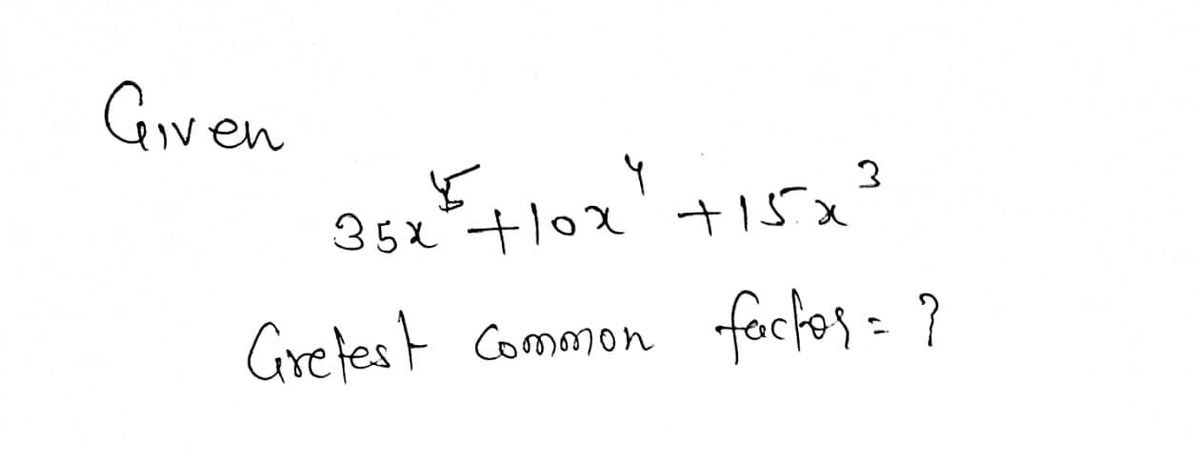 Given
35x⁵+10x⁴+15x³
Gretest common factor=?